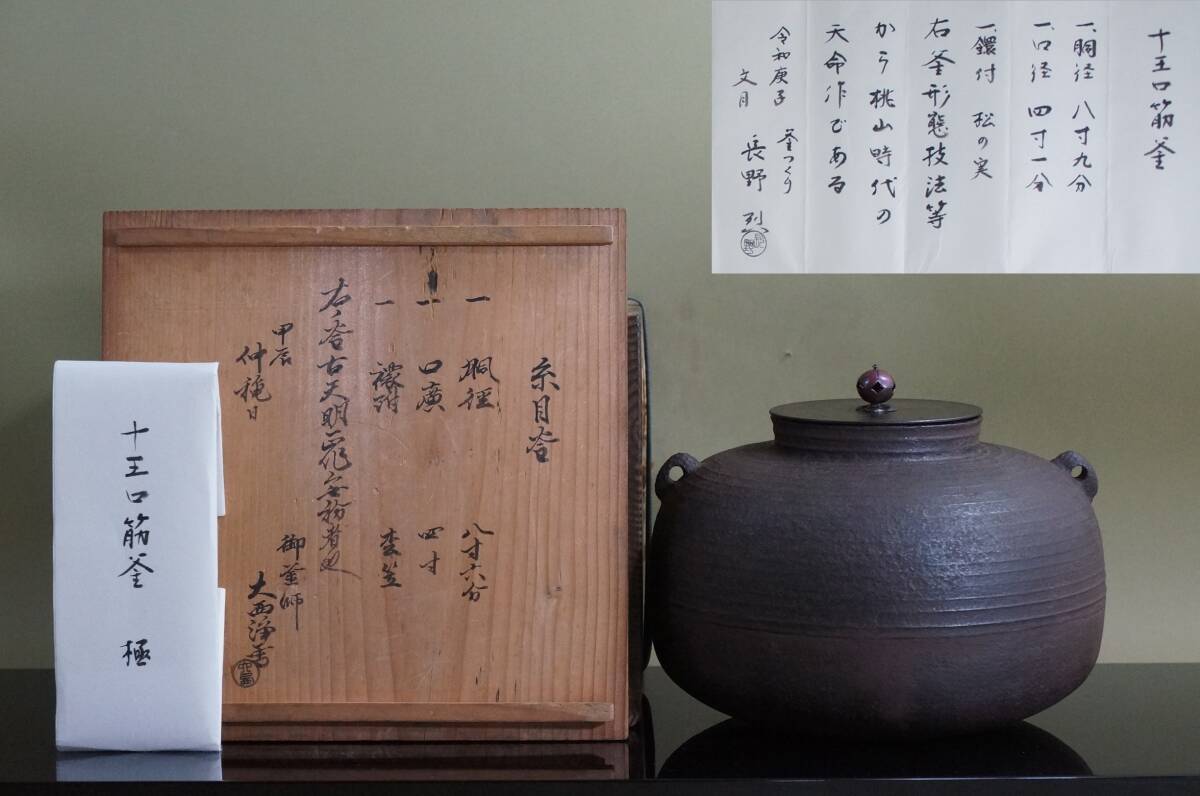 十王口筋釜
一、胴径 八寸九分
一、口径 四寸一分
一、鐶付 松の実
右釜形態技法等
から桃山時代の
天命作である
令和庚子
文月
釜つくり
長野 烈
糸目釜
一 胴径 八寸六分
一 口廣 四寸
一 鐶附
右ノ釜古天明
甲辰
仲穐日
御釜師
大西浄
十王口筋釜 極